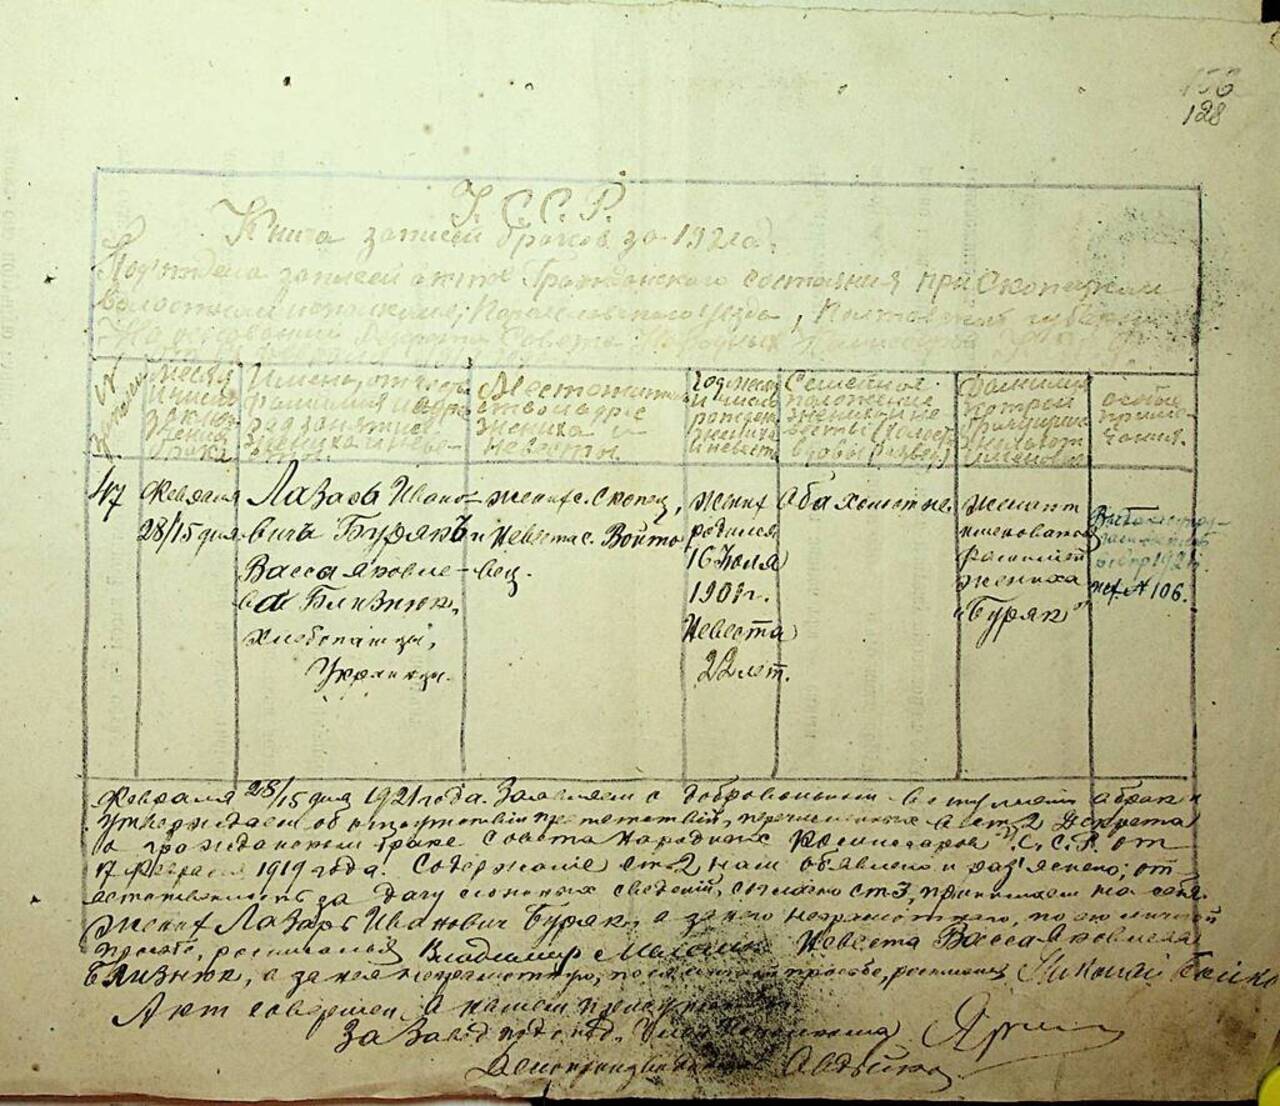 156
128
У. С. С. Р.
Книга записей браков за 1921 год.
Подотдела записей актов Гражданского состояния при Скопецком
Волостном исполкоме, Переяславского уезда, Полтавской губернии
На основании Декрета Совета Народных
№ записи
Месяц и число заключения брака
Имена, отчества, фамилия
жениха и невесты.
Местожительство и адрес жениха и невесты.
Год, месяц и число рождения жениха и невесты
Семейное положение жениха и невесты
Фамилия
которой
именовать
особые примечания.
47
Февраля 28/15 дня
Лазарь Иванович Бурякъ и
Васса Яковлева Близнюк,
хлебопашцы,
Украинцы.
жених с. Скопец,
Невеста с. Войтовец.
жених родился
16 Июля
190 г.
Невеста
22 лет.
Оба холостые.
Желают
именоваться
фамилией
жениха
"Буряк"
192
№ 106.
Февраля 28/15 дня 1921 года. Заявляем о добровольном вступлении в брак и
утверждаем об отсутствии препятствий, перечисленных в ст. 2 Декрета
о гражданском браке Совета Народных Комиссаров У. С. С. Р. от
17 февраля 1919 года. Содержание ст. 2 нам объявлено и раз'яснено; от-
ветственность за дачу ложных сведений, согласно ст 3, принимаем на себя.
Жених Лазарь Иванович Буряк, а за него неграмотного, по его личной
просьбе, росписался Владимир Невеста Васса Яковлева
Близнюк, а за нея неграмотную, по ея личной просьбе, росписался Николай Бойко
Акт совершен в нашем присутствии
За Завед. подотд. Член Исполкома
Делопроизводитель Авдейко